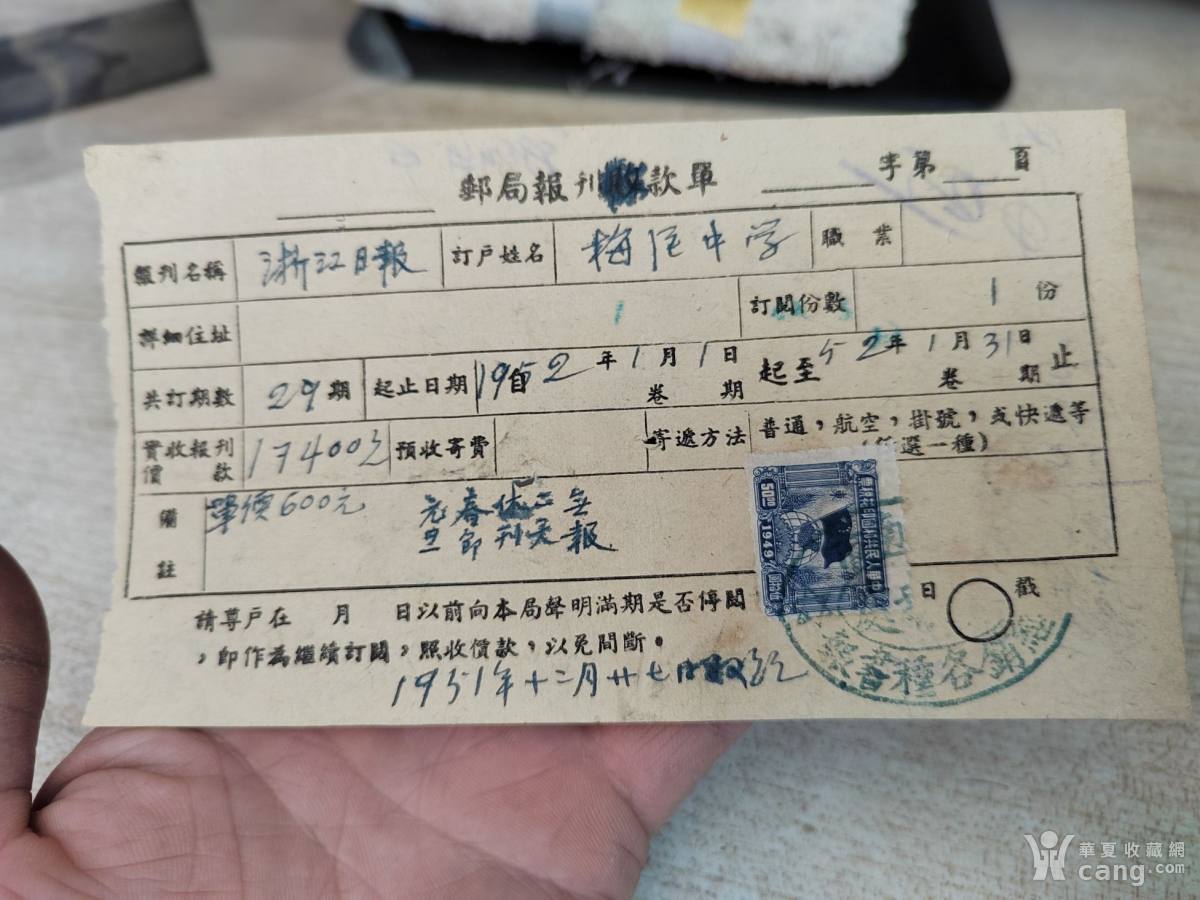 字第 頁
郵局報刊收款單
報刊名稱 浙江日報 訂戶姓名 梅 中学 職業
詳細住址 1 訂閱份數 1 份
共訂期數 29期 起止日期 自1952年1月1日 卷 期 起至52年1月31日 卷 期 止
實收報刊價款 17400元 預收寄費 寄遞方法 普通，航空，掛號，或快遞等(任選一種)
備註 單價600元 元旦春節休刊二天無報
中華人民共和國印花稅票
1949
50.00
請尊戶在 月 日以前向本局聲明滿期是否停閱
，即作為繼續訂閱，照收價款，以免間斷。
日 戳
1951年十二月廿七日收訖
經銷各種書報
華夏收藏網
cang.com